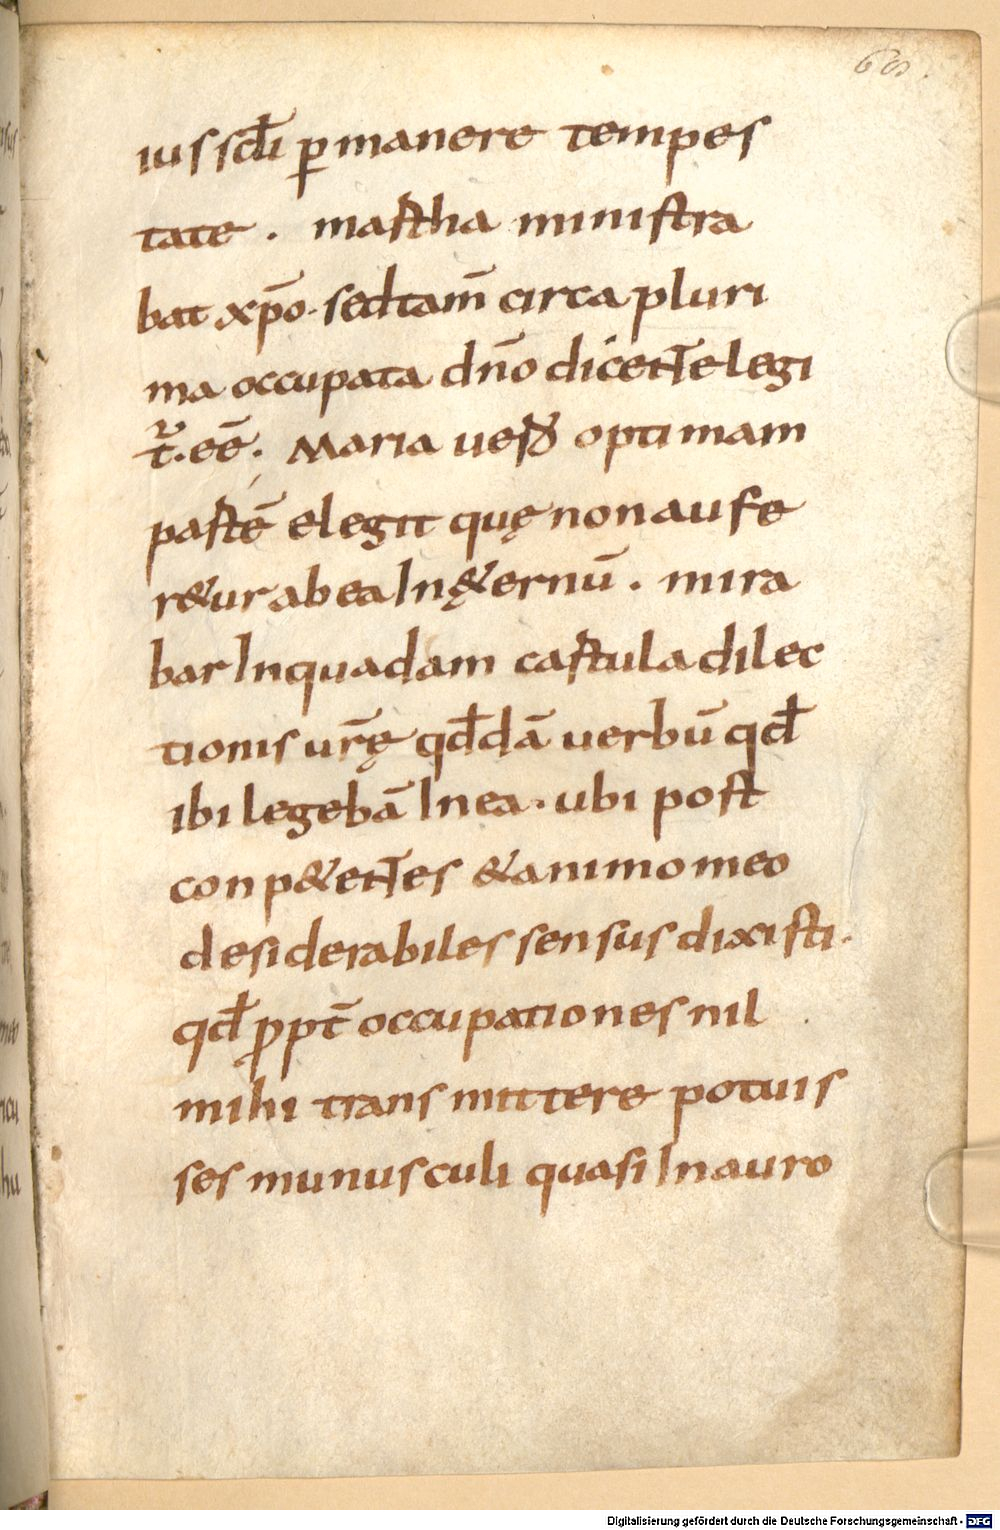 68.
ius scłi ꝑmanere tempes
tate . martha ministra
bat xp̄o. sed tam̄ circa pluri
ma occupata dn̄o dicente legi
t͛. eē. Maria uero optimam
partē elegit quę non aufe
r&ur ab ea In ę&ernū . mira
bar In quadam cartula dilec
tionis ur̄ę qđdā uerbū qđ
ibi legebā In ea . ubi post
conp&entes & animo meo
desiderabiles sensus dixisti .
qđ ꝓpt̄ occupationes nil
mihi transmittere potuis
ses munusculi quasi In auro
Digitalisierung gefördert durch die Deutsche Forschungsgemeinschaft - DFG